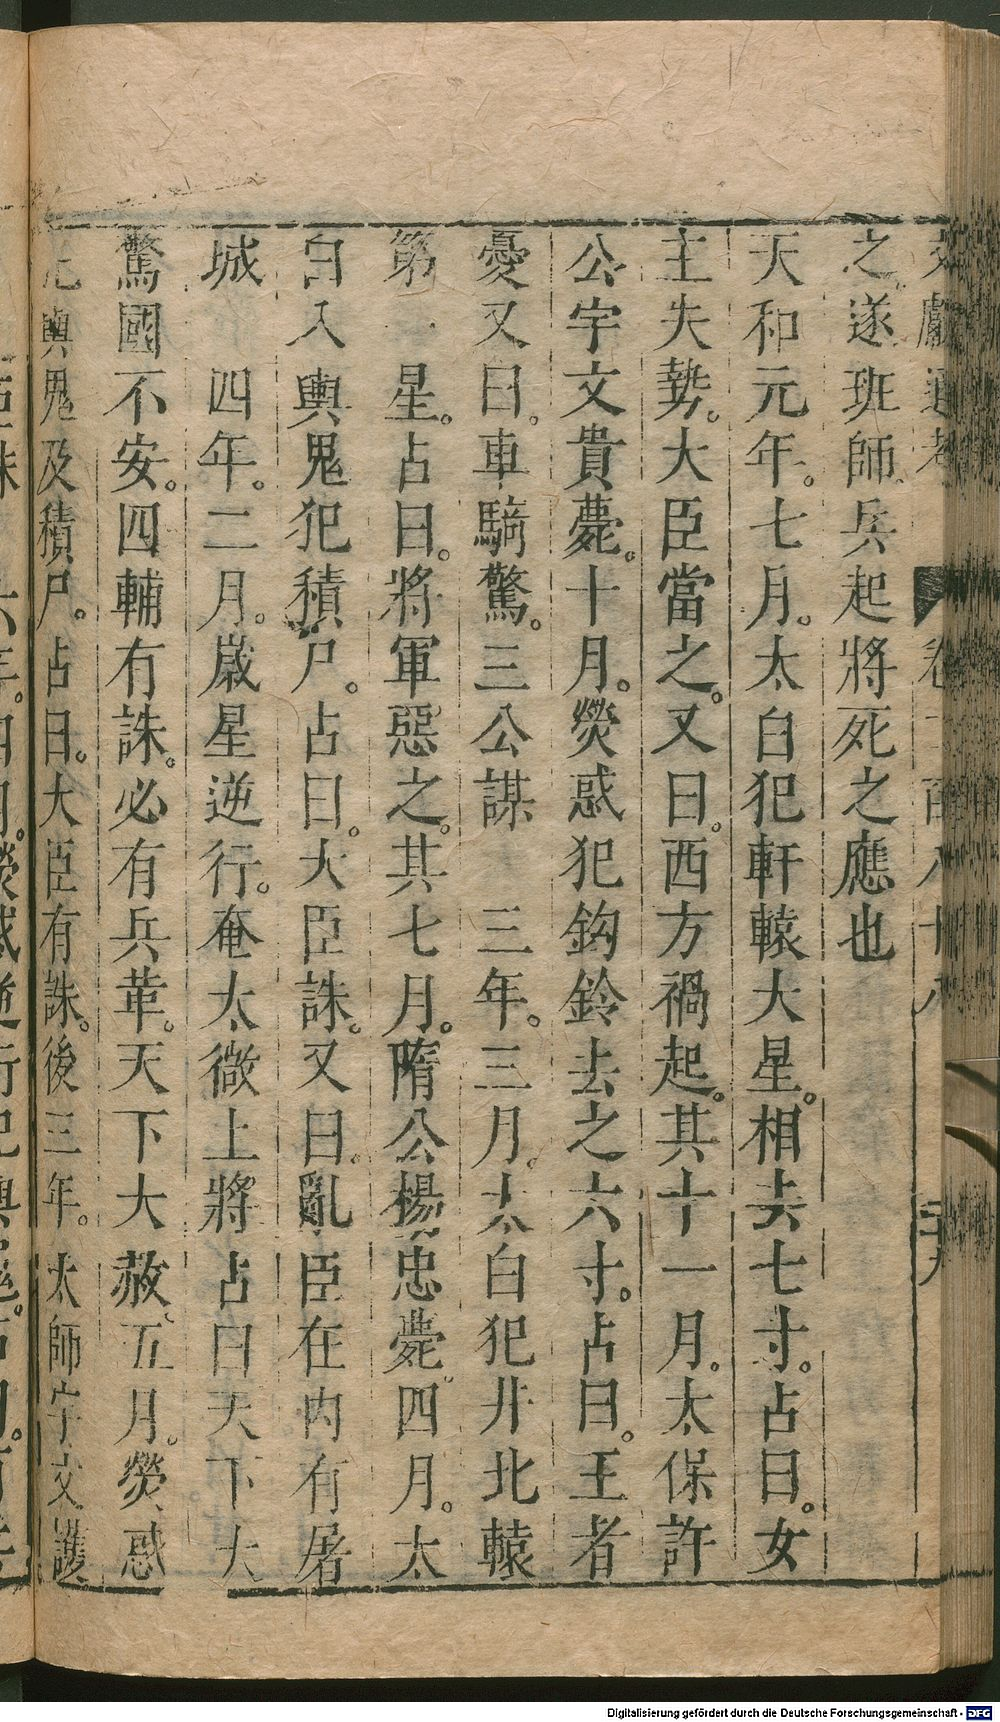 文獻通考　卷二百八十八　二十九
之遂班師。兵起將死之應也
天和元年。七月。太白犯軒轅大星。相去七寸。占曰。女
主失勢。大臣當之。又曰。西方禍起。其十一月。太保許
公宇文貴薨。十月。熒惑犯鈎鈴去之六寸。占曰。王者
憂又曰。車騎驚。三公謀　三年。三月。太白犯井北轅
第一星。占曰。將軍惡之。其七月。隋公楊忠薨。四月。太
白入輿鬼犯積尸。占曰。大臣誅。又曰。亂臣在內有屠
城　四年。二月。歲星逆行。奄太微上將占曰天下大
驚國不安。四輔有誅。必有兵革。天下大赦。五月。熒惑
輿鬼及積尸。占曰。大臣有誅。後三年。太師宇文護
Digitalisierung gefördert durch die Deutsche Forschungsgemeinschaft - DFG